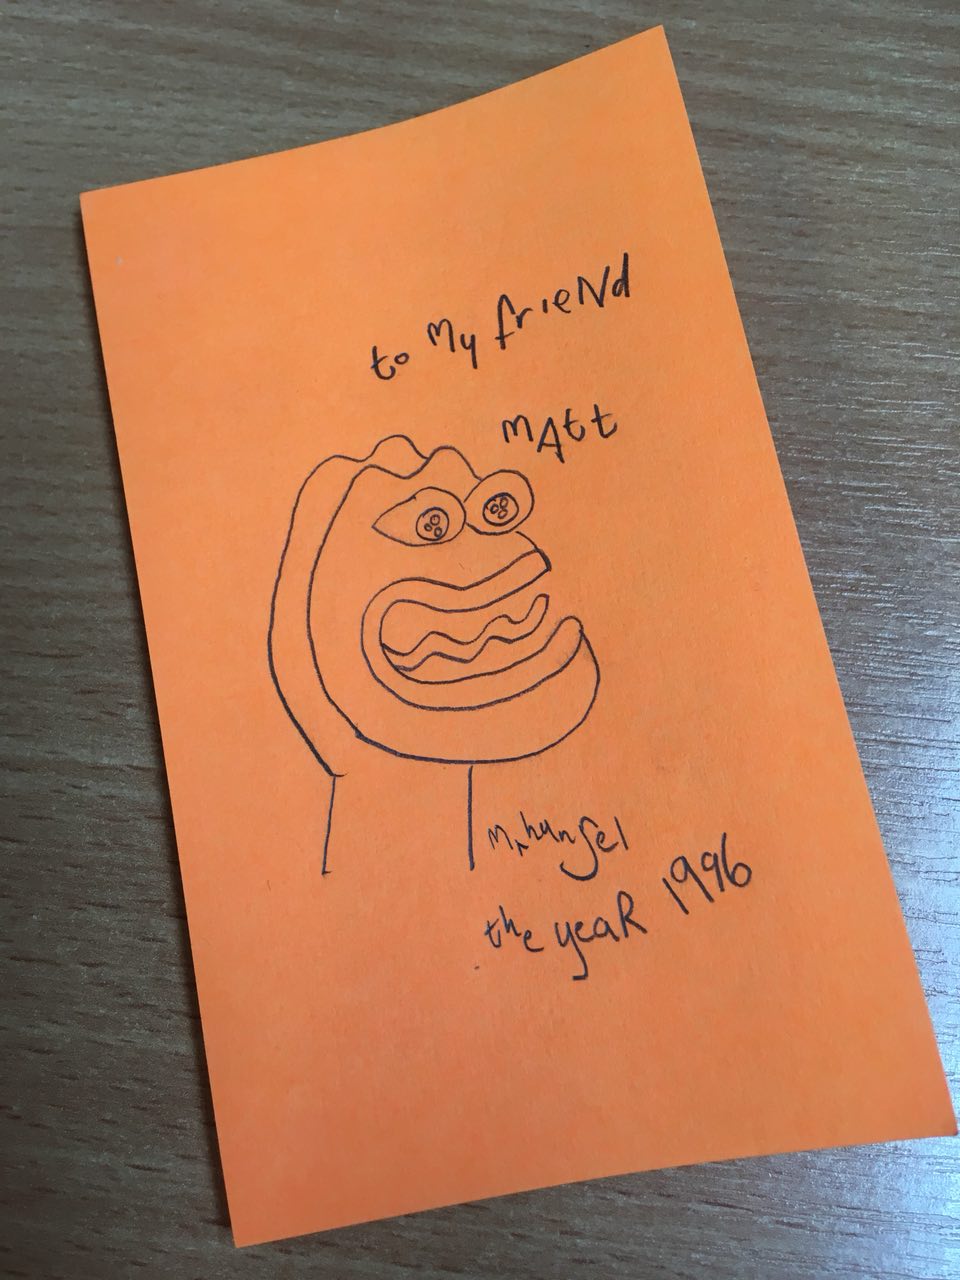 to My frieNd
mAtt
Mr hunsel
the yeaR 1996